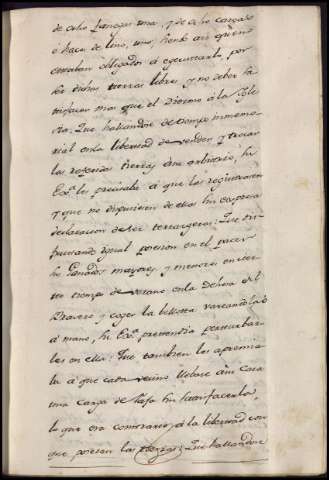 de ocho fanegas una, y de ocho cargas
ó haces de lino, uno, siendo asi q.e no
estaban obligados á egecutarlo, por
ser dichas tierras libres, y no deber sa
tisfacer mas que el Diezmo á la Igle
sia: Que hallandose de tiempo inmemo
rial en la libertad de vender y trocar
las referidas tierras á su arbitrio, su
Ex.a les precisaba á que las registrasen
y que no dispusiesen de ellas sin expresa
declaracion de ser tercargeras: Que dis
frutando igual posesion en el pacer
sus Ganados mayores, y menores en cier
to tiempo de verano en la Dehesa del
Bravero y coger la bellota vareandola
á mano, su Ex.a pretendia perturbar
les en ella: Que tambien les apremia
ba á que cada vecino llevase á su Casa
una Carga de Paja sin satisfacerla,
lo que era contrario á la libertad con
que poseian las tierras: Que hallandose